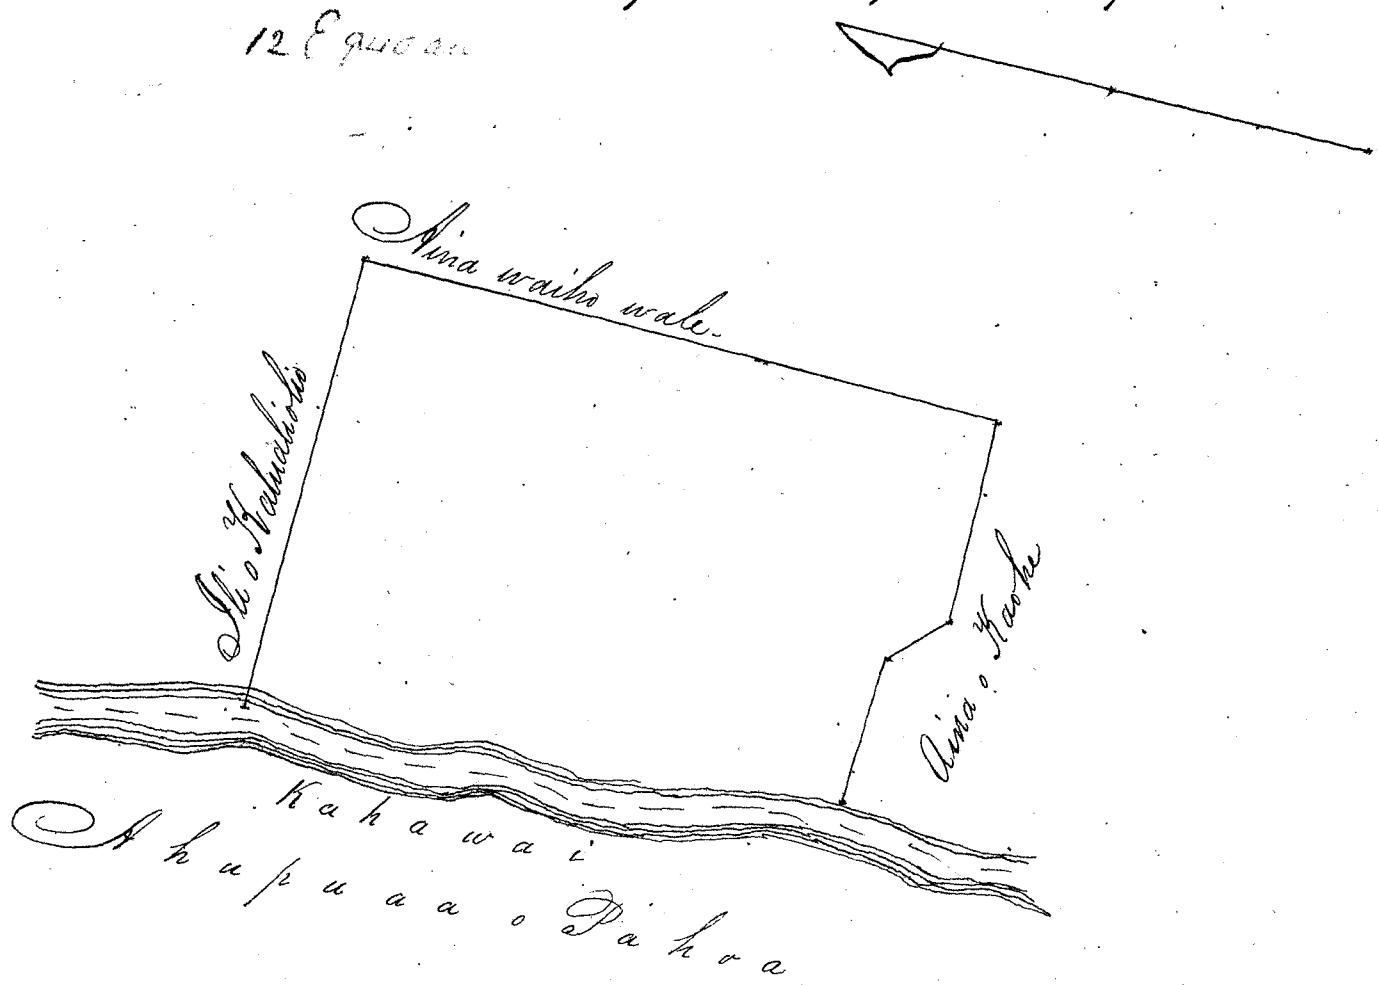 12
Aina waiho wale.
Ili o Kaluaholio
Aina o Kaohe
Kahawai
Ahupuaa o Pahoa